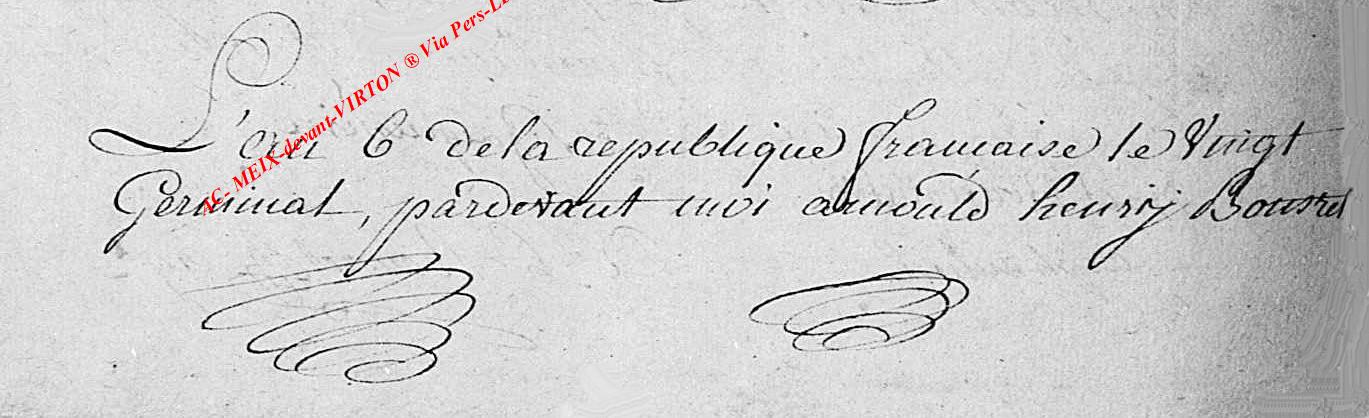 AC- MEIX-devant-VIRTON ® Via Pers-L
L'an 6 de la republique francaise le Vingt
Germinal, pardevant moi arnould henrij